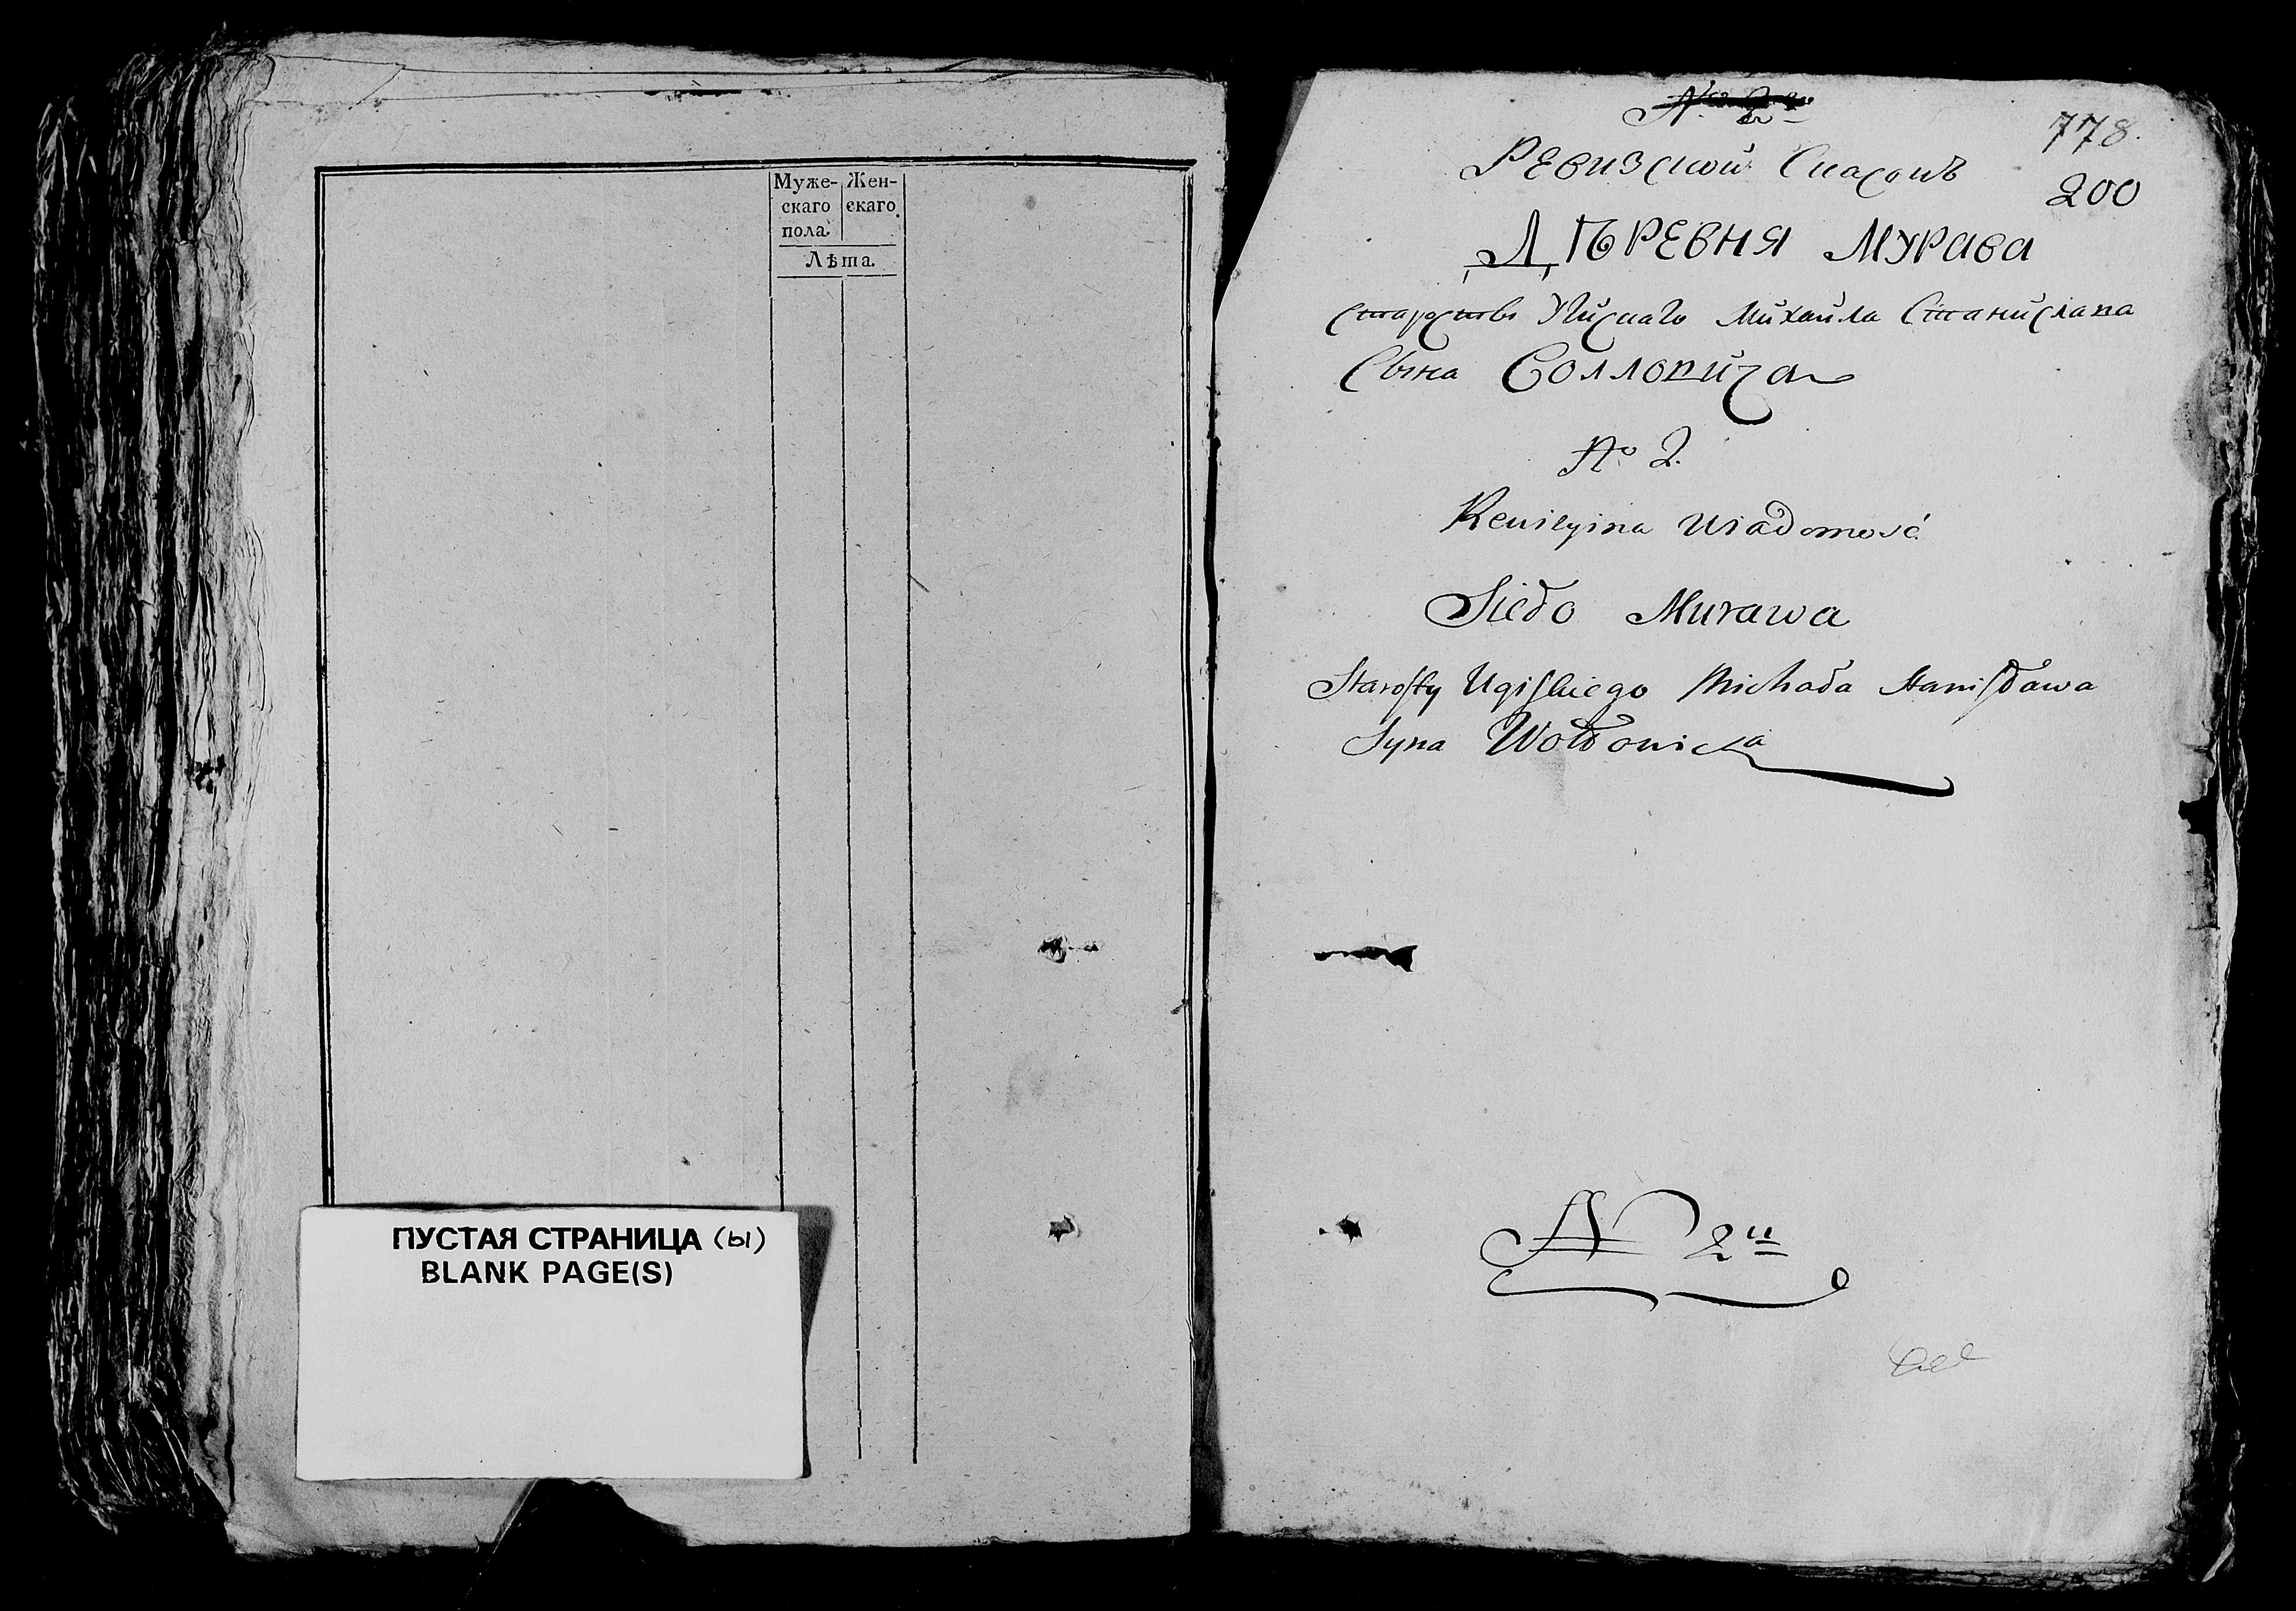 Муже-
скаго
пола.
Жен-
скаго.
Лѣта.
ПУСТАЯ СТРАНИЦА (ы)
BLANK PAGE(S)
778.
200
Ревизской Сказкѣ
ДѢРЕВНЯ МУРАВА
Михаила Станислава
Сына Солловича
№ 2.
Rewizyina Wiadomość
Sieło Murawa
Starosty Ugiskiego Michała Stanisława
Syna Wołłowicza
№ 2й